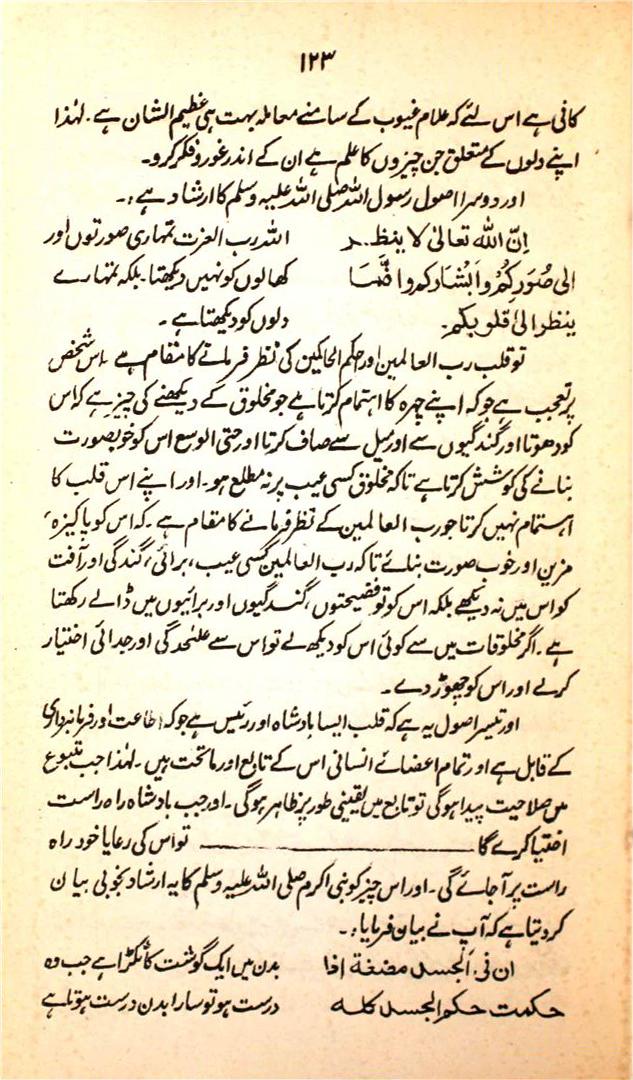 ۱۲۳
کافی ہے اس لئے کہ علام غیوب کے سامنے معاملہ بہت ہی عظیم الشان ہے۔ لہٰذا
اپنے دلوں کے متعلق جن چیزوں کا علم ہے ان کے اندر غور و فکر کرو۔
اور دوسرا اصول رسول اللہ صلی اللہ علیہ وسلم کا ارشاد ہے:۔
اِنّ اللہ تعالیٰ لا ینظر اللہ رب العزت تمہاری صورتوں اور
الی صُوَرِکُمْ وابْشَارکم وانّما کھالوں کو نہیں دیکھتا۔ بلکہ تمہارے
ینظر الیٰ قلوبکم۔ دلوں کو دیکھتا ہے۔
تو قلب رب العالمین اور حکم الحاکمین کی نظر فرمانے کا مقام ہے۔ اس شخص
پر تعجب ہے جو کہ اپنے چہرہ کا اہتمام کرتا ہے جو مخلوق کے دیکھنے کی چیز ہے کہ اس
کو دھوتا اور گندگیوں سے اور میل سے صاف کرتا اور حتی الوسع اس کو خوبصورت
بنانے کی کوشش کرتا ہے تاکہ مخلوق کسی عیب پر نہ مطلع ہو۔ اور اپنے اس قلب کا
اہتمام نہیں کرتا جو رب العالمین کے نظر فرمانے کا مقام ہے۔ کہ اس کو پاکیزہ،
مزین اور خوب صورت بنائے تاکہ رب العالمین کسی عیب، برائی، گندگی اور آفت
کو اس میں نہ دیکھے بلکہ اس کو تو فضیحتوں، گندگیوں اور برائیوں میں ڈالے رکھتا
ہے۔ اگر مخلوقات میں سے کوئی اس کو دیکھ لے تو اس سے علیٰحدگی اور جدائی اختیار
کرلے اور اس کو چھوڑ دے۔
اور تیسرا اصول یہ ہے کہ قلب ایسا بادشاہ اور رئیس ہے جو کہ اطاعت اور فرمانبرداری
کے قابل ہے اور تمام اعضائے انسانی اس کے تابع اور ماتحت ہیں۔ لہٰذا جب متبوع
میں صلاحیت پیدا ہوگی تو تابع میں یقینی طور پر ظاہر ہوگی۔ اور جب بادشاہ راہ راست
اختیا کرے گا ــــــــــــــــ تو اس کی رعایا خود راہ
راست پر آ جائے گی۔ اور اس چیز کو نبی اکرم صلی اللہ علیہ وسلم کا یہ ارشاد بخوبی بیان
کر دیتا ہے کہ آپ نے بیان فرمایا:۔
ان فی الجسد مضغة اذا بدن میں ایک گوشت کا ٹکڑا ہے جب وہ
حکمت حکم الجسد کلہ درست ہو تو سارا بدن درست ہوتا ہے